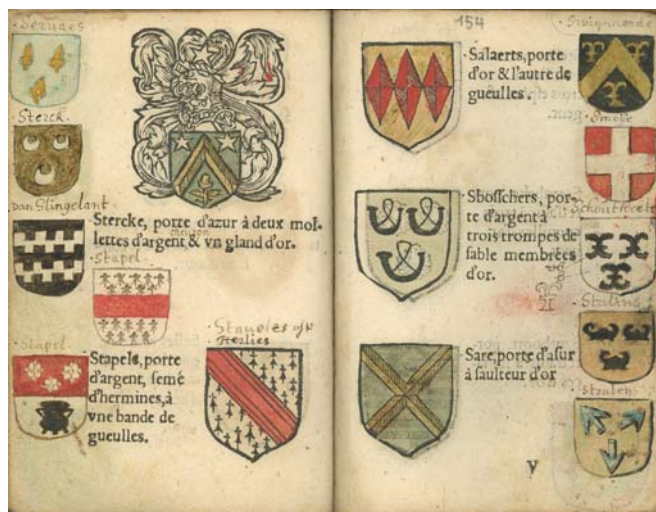 Servaes
Sterck.
van Slingelant
Stercke, porte d'azur à deux mol-
lettes d'argent & vn gland d'or.
Stapel
Stapel
Stapels, porte
d'argent, semé
d'hermines, à
vne bande de
gueulles.
Stavoles
Herlies
154
Salaerts, porte
d'or & l'autre de
gueulles.
Smobe
Sbosschers, por-
te d'argent à
trois trompes de
sable membrées
d'or.
Stalins
Sare, porte d'asur
à saulteur d'or
Stralen
y